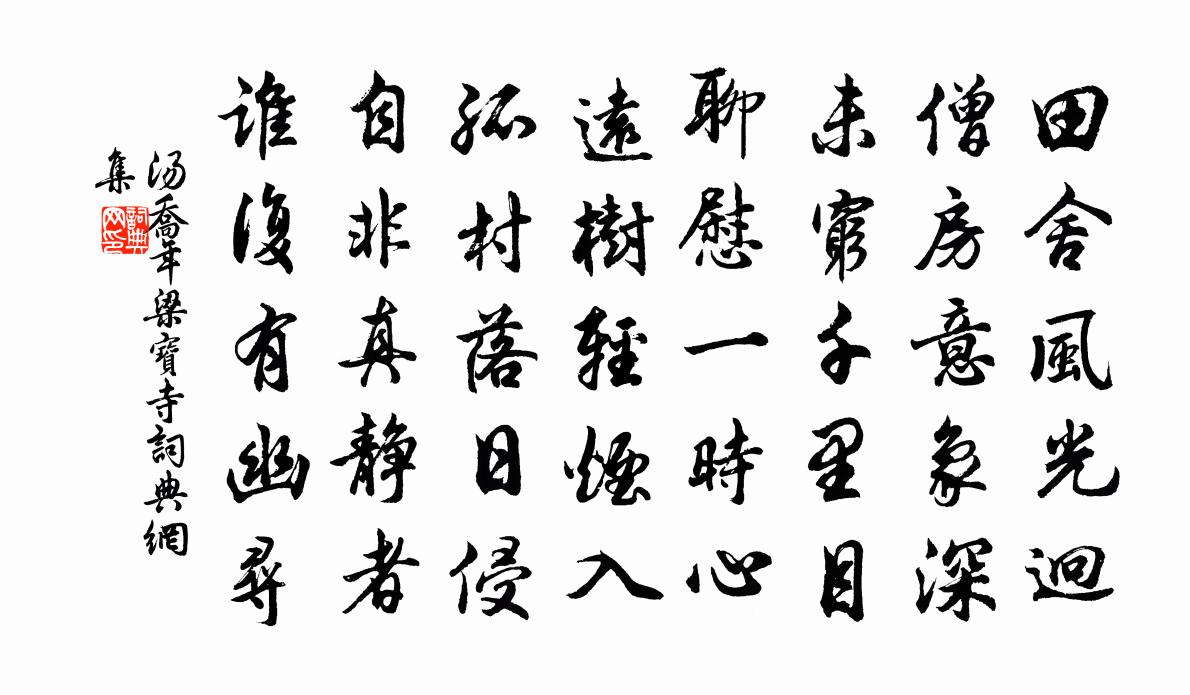 田舍風光迥
僧房意象深
未窮千里目
聊慰一時心
遠樹輕煙入
孤村落日侵
自非真靜者
誰復有幽尋
汤喬年梁寶寺詞典網
集
詞典
网印